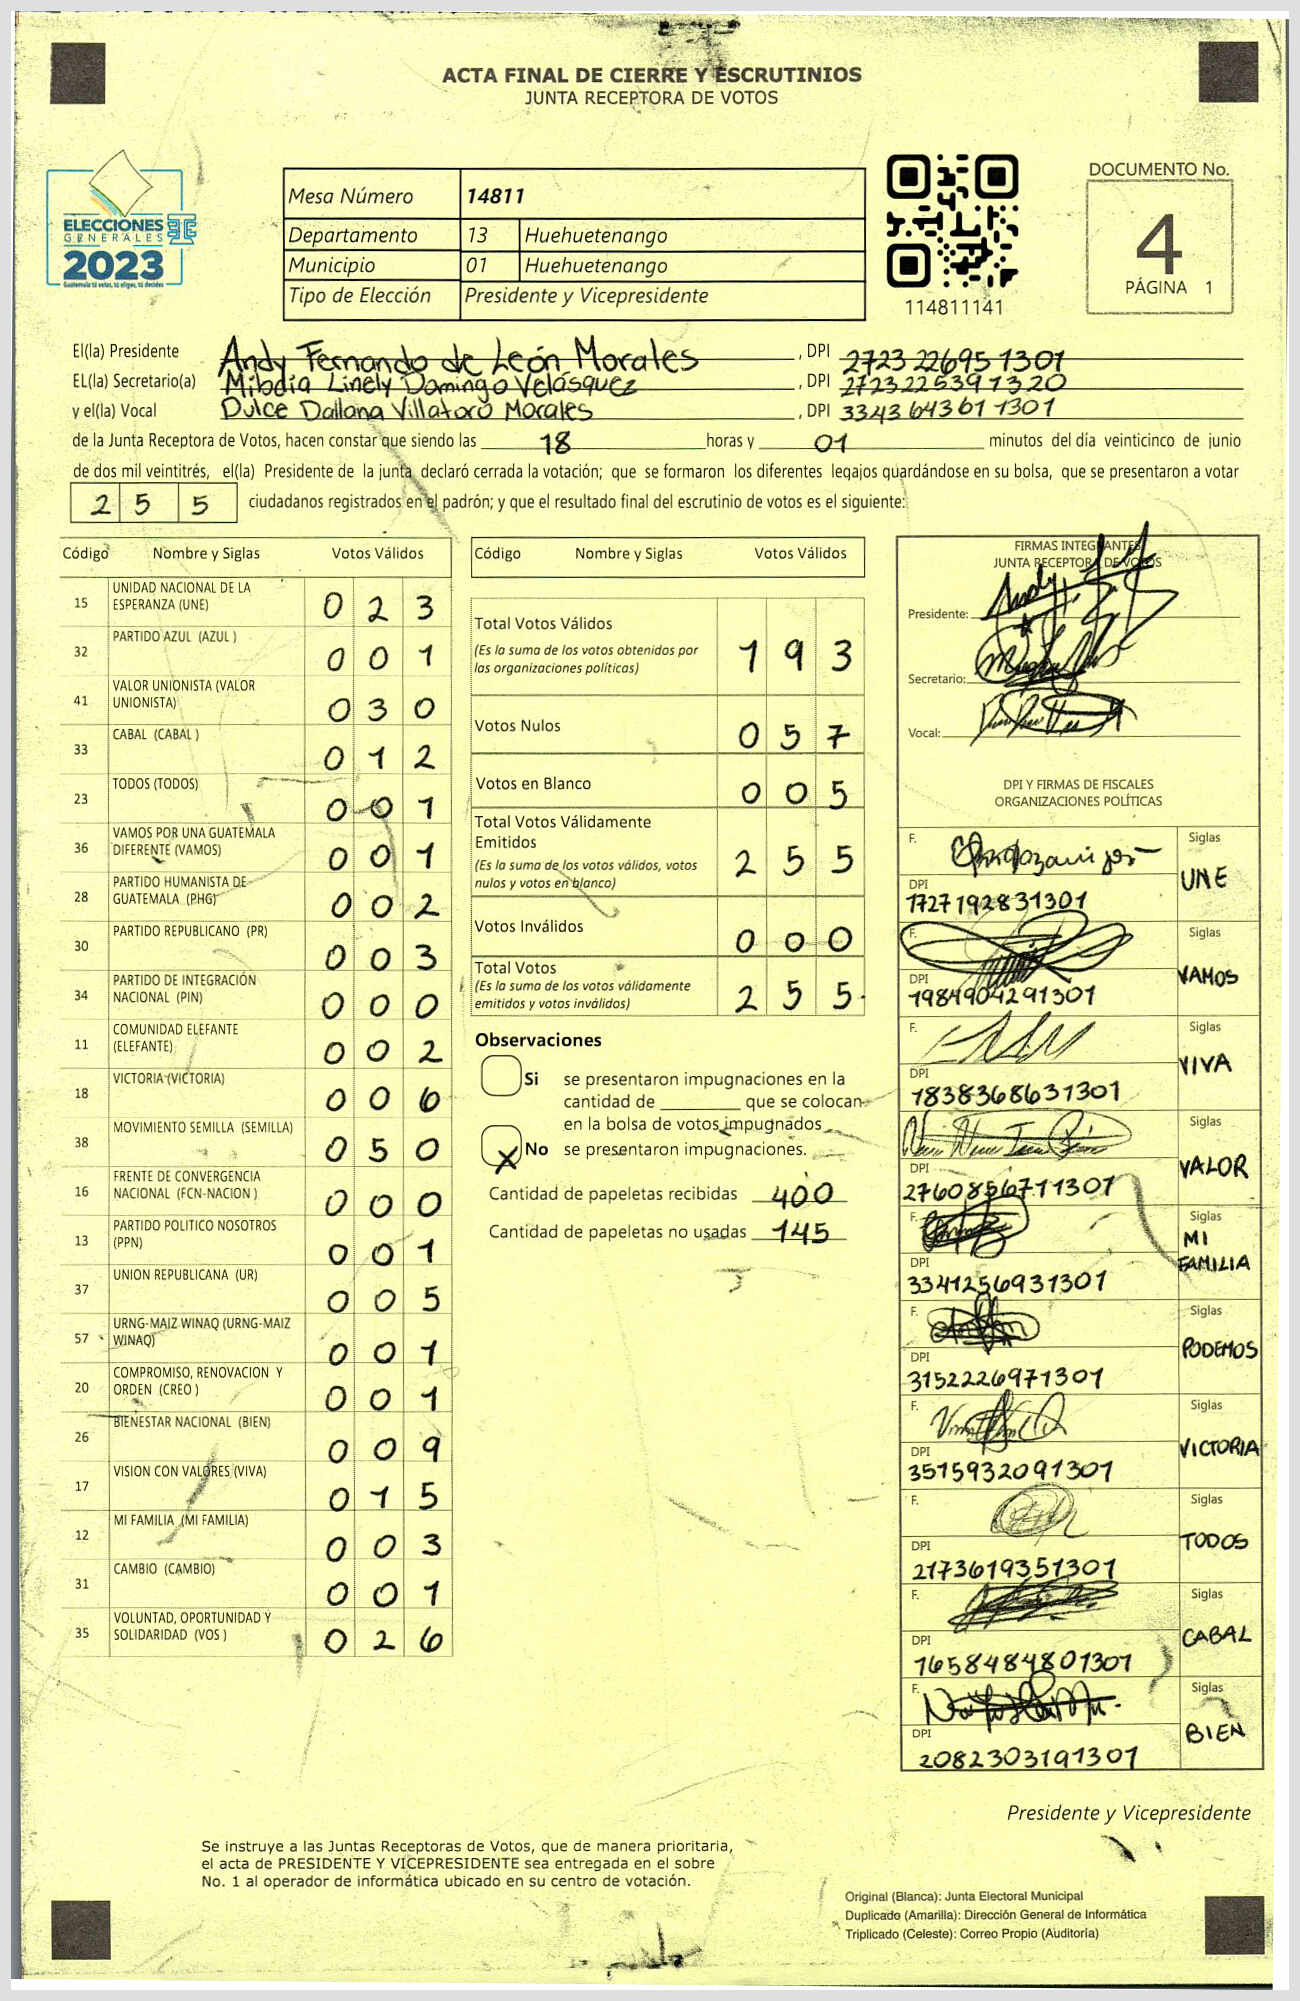 ACTA FINAL DE CIERRE Y ESCRUTINIOS
JUNTA RECEPTORA DE VOTOS
ELECCIONES
GENERALES
2023
Guatemala tú votas, tú eliges, tú decides
Mesa Número 14811
Departamento 13 Huehuetenango
Municipio 01 Huehuetenango
Tipo de Elección Presidente y Vicepresidente
114811141
DOCUMENTO No.
4
PÁGINA 1
El(la) Presidente Andy Fernando de León Morales , DPI 2723 22695 1301
EL(la) Secretario(a) Mibdia Linely Domingo Velásquez , DPI 2723 22539 1320
y el(la) Vocal Dulce Dallana Villatoro Morales , DPI 3343 64361 1301
de la Junta Receptora de Votos, hacen constar que siendo las 18 horas y 01 minutos del día veinticinco de junio
de dos mil veintitrés, el(la) Presidente de la junta declaró cerrada la votación; que se formaron los diferentes legajos guardándose en su bolsa, que se presentaron a votar
2 5 5 ciudadanos registrados en el padrón; y que el resultado final del escrutinio de votos es el siguiente:
Código Nombre y Siglas Votos Válidos
15 UNIDAD NACIONAL DE LA ESPERANZA (UNE) 0 2 3
32 PARTIDO AZUL (AZUL ) 0 0 1
41 VALOR UNIONISTA (VALOR UNIONISTA) 0 3 0
33 CABAL (CABAL ) 0 1 2
23 TODOS (TODOS) 0 0 1
36 VAMOS POR UNA GUATEMALA DIFERENTE (VAMOS) 0 0 1
28 PARTIDO HUMANISTA DE GUATEMALA (PHG) 0 0 2
30 PARTIDO REPUBLICANO (PR) 0 0 3
34 PARTIDO DE INTEGRACIÓN NACIONAL (PIN) 0 0 0
11 COMUNIDAD ELEFANTE (ELEFANTE) 0 0 2
18 VICTORIA (VICTORIA) 0 0 6
38 MOVIMIENTO SEMILLA (SEMILLA) 0 5 0
16 FRENTE DE CONVERGENCIA NACIONAL (FCN-NACION ) 0 0 0
13 PARTIDO POLITICO NOSOTROS (PPN) 0 0 1
37 UNION REPUBLICANA (UR) 0 0 5
57 URNG-MAIZ WINAQ (URNG-MAIZ WINAQ) 0 0 1
20 COMPROMISO, RENOVACION Y ORDEN (CREO ) 0 0 1
26 BIENESTAR NACIONAL (BIEN) 0 0 9
17 VISION CON VALORES (VIVA) 0 1 5
12 MI FAMILIA (MI FAMILIA) 0 0 3
31 CAMBIO (CAMBIO) 0 0 1
35 VOLUNTAD, OPORTUNIDAD Y SOLIDARIDAD (VOS ) 0 2 6
Código Nombre y Siglas Votos Válidos
Total Votos Válidos 1 9 3
(Es la suma de los votos obtenidos por
las organizaciones políticas)
Votos Nulos 0 5 7
Votos en Blanco 0 0 5
Total Votos Válidamente
Emitidos 2 5 5
(Es la suma de los votos válidos, votos
nulos y votos en blanco)
Votos Inválidos 0 0 0
Total Votos 2 5 5
(Es la suma de los votos válidamente
emitidos y votos inválidos)
Observaciones
Si se presentaron impugnaciones en la
cantidad de ________ que se colocan
en la bolsa de votos impugnados
X No se presentaron impugnaciones.
Cantidad de papeletas recibidas 400
Cantidad de papeletas no usadas 145
FIRMAS INTEGRANTES
JUNTA RECEPTORA DE VOTOS
Presidente:
Secretario:
Vocal:
DPI Y FIRMAS DE FISCALES
ORGANIZACIONES POLÍTICAS
F. Siglas
DPI UNE
1727192831301
F. Siglas
DPI VAMOS
1984904291301
F. Siglas
DPI VIVA
1838368631301
Siglas
DPI VALOR
2760856711301
F. Siglas
DPI MI FAMILIA
3341256931301
F. Siglas
DPI PODEMOS
3152226971301
F. Siglas
DPI VICTORIA
3515932091301
F. Siglas
DPI TODOS
2173619351301
F. Siglas
DPI CABAL
1658484801301
F. Siglas
DPI BIEN
2082303191301
Presidente y Vicepresidente
Se instruye a las Juntas Receptoras de Votos, que de manera prioritaria,
el acta de PRESIDENTE Y VICEPRESIDENTE sea entregada en el sobre
No. 1 al operador de informática ubicado en su centro de votación.
Original (Blanca): Junta Electoral Municipal
Duplicado (Amarilla): Dirección General de Informática
Triplicado (Celeste): Correo Propio (Auditoría)